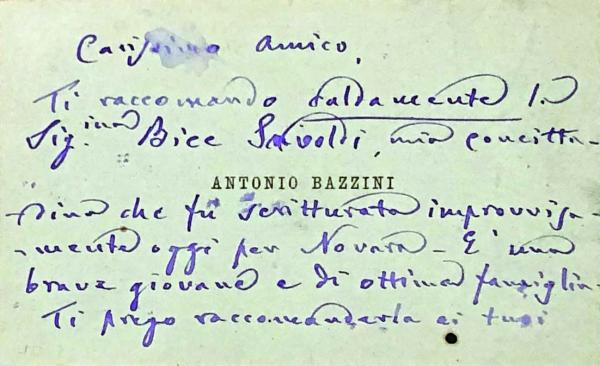 Carissimo amico,
Ti raccomando caldamente la
Sig.ina Bice, mia concitta-
ANTONIO BAZZINI
-dina che fu scritturata improvvisa-
-mente oggi per Novara - E' una
brava giovane e di ottima famiglia.
Ti prego raccomandarla ai tuoi